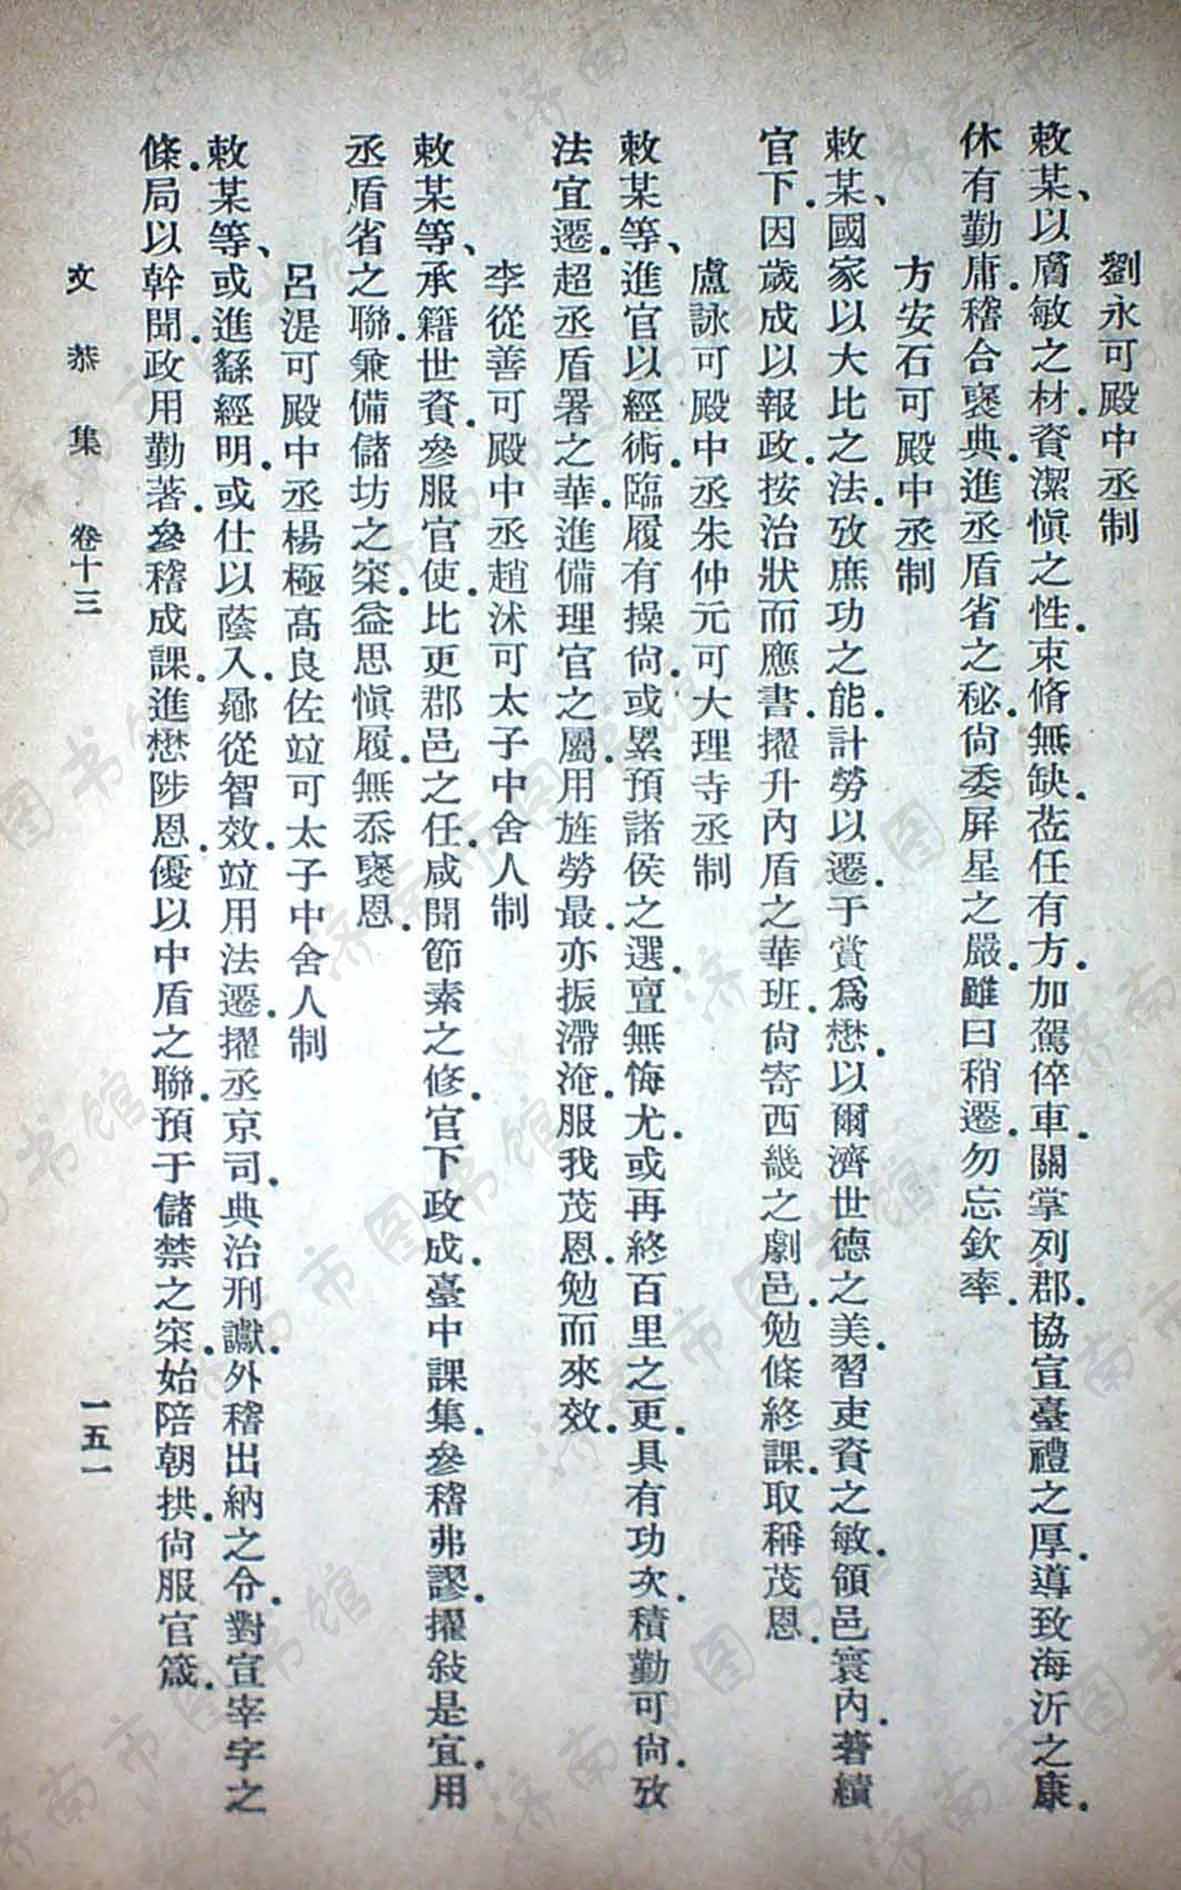 劉永可殿中丞制
敕某、以膺敏之材.資潔愼之性.束脩無缺.莅任有方.加駕倅車.關掌列郡.協宣臺禮之厚.導致海沂之康.
休有勤庸.稽合褒典.進丞盾省之秘.尙委屏星之嚴.雖曰稍遷.勿忘欽率.
方安石可殿中丞制
敕某、國家以大比之法.攷庶功之能.計勞以遷.于賞爲懋.以爾濟世德之美.習吏資之敏.領邑寰內.著績
官下.因歲成以報政.按治狀而應書.擢升內盾之華班.尙寄西畿之劇邑.勉條終課.取稱茂恩.
盧詠可殿中丞朱仲元可大理寺丞制
敕某等、進官以經術.臨履有操尙.或累預諸侯之選.亶無悔尤.或再終百里之更.具有功次.積勤可尙.攷
法宜遷.超丞盾署之華.進備理官之屬.用旌勞最.亦振滯淹.服我茂恩.勉而來效.
李從善可殿中丞趙沭可太子中舍人制
敕某等、承籍世資.參服官使.比更郡邑之任.咸聞節素之修.官下政成.臺中課集.參稽弗謬.擢敍是宜.用
丞盾省之聯.兼備儲坊之寀.益思愼履.無忝褒恩.
呂湜可殿中丞楊極高良佐竝可太子中舍人制
敕某等、或進繇經明.或仕以蔭入.勮從智效.竝用法遷.擢丞京司.典治刑讞.外稽出納之令.對宣宰字之
條.局以幹聞.政用勤著.參稽成課.進懋陟恩.優以中盾之聯.預于儲禁之寀.始陪朝拱.尙服官箴.
文恭集 卷十三 一五一
济南市图书馆